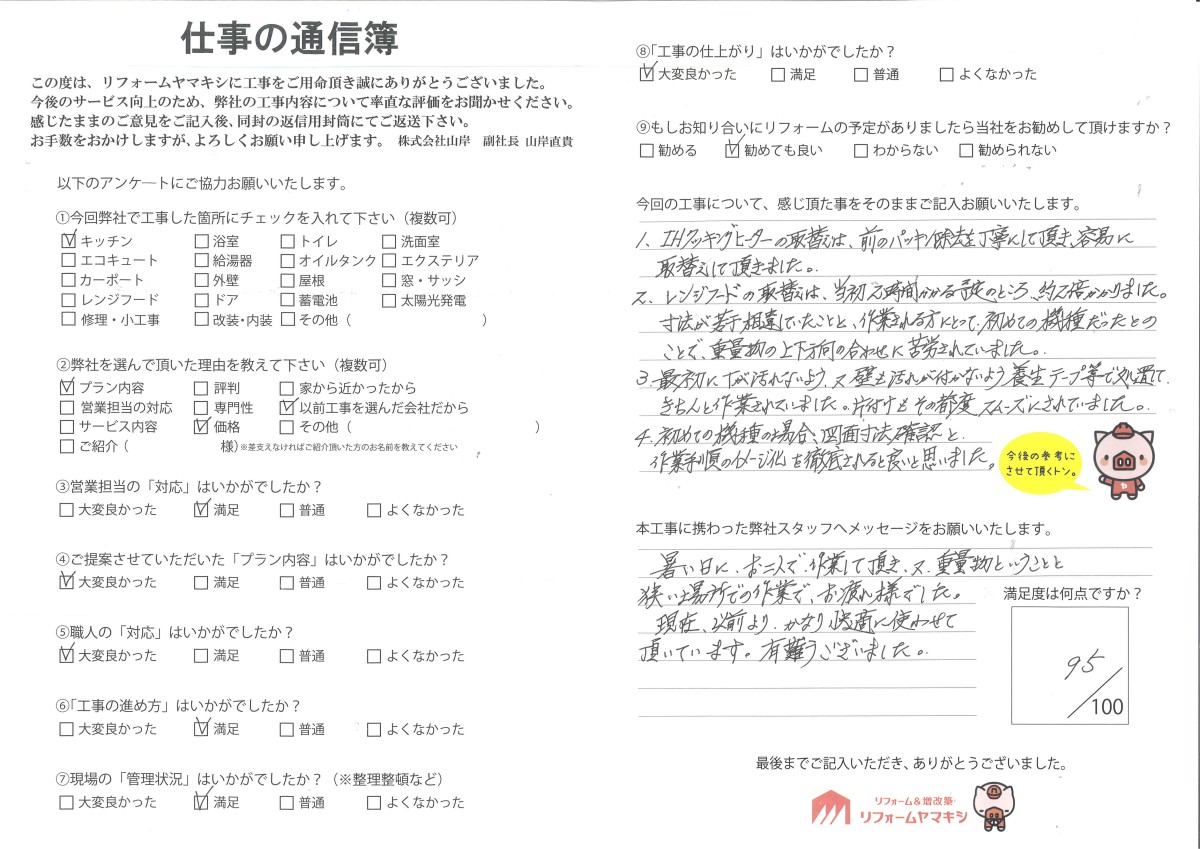 仕事の通信簿
この度は、リフォームヤマキシに工事をご用命頂き誠にありがとうございました。
今後のサービス向上のため、弊社の工事内容について率直な評価をお聞かせください。
感じたままのご意見をご記入後、同封の返信用封筒にてご返送下さい。
お手数をおかけしますが、よろしくお願い申し上げます。 株式会社山岸 副社長 山岸直貴
以下のアンケートにご協力お願いいたします。
①今回弊社で工事した箇所にチェックを入れて下さい（複数可）
☑キッチン □浴室 □トイレ □洗面室
□エコキュート □給湯器 □オイルタンク □エクステリア
□カーポート □外壁 □屋根 □窓・サッシ
□レンジフード □ドア □蓄電池 □太陽光発電
□修理・小工事 □改装・内装 □その他（ ）
②弊社を選んで頂いた理由を教えて下さい（複数可）
☑プラン内容 □評判 □家から近かったから
□営業担当の対応 □専門性 ☑以前工事を選んだ会社だから
□サービス内容 ☑価格 □その他（ ）
□ご紹介（ 様）※差支えなければご紹介頂いた方のお名前を教えてください
③営業担当の「対応」はいかがでしたか？
□大変良かった ☑満足 □普通 □よくなかった
④ご提案させていただいた「プラン内容」はいかがでしたか？
☑大変良かった □満足 □普通 □よくなかった
⑤職人の「対応」はいかがでしたか？
☑大変良かった □満足 □普通 □よくなかった
⑥「工事の進め方」はいかがでしたか？
□大変良かった ☑満足 □普通 □よくなかった
⑦現場の「管理状況」はいかがでしたか？（※整理整頓など）
□大変良かった ☑満足 □普通 □よくなかった
⑧「工事の仕上がり」はいかがでしたか？
☑大変良かった □満足 □普通 □よくなかった
⑨もしお知り合いにリフォームの予定がありましたら当社をお勧めして頂けますか？
□勧める ☑勧めても良い □わからない □勧められない
今回の工事について、感じ頂た事をそのままご記入お願いいたします。
1、IHクッキングヒーターの取替えは、前のパッキン除去を丁寧にして頂き、容易に
取替えして頂きました。
2、レンジフードの取替えは、当初2時間かかる予定のところ、約2倍かかりました。
寸法が若干相違していたことと、作業される方にとって、初めての機種だったとの
ことで、重量物の上下方向の合わせに苦労されていました。
3、最初に下が汚れないよう、又壁も汚れが付かないよう養生テープ等で処置して、
きちんと作業されていました。片付けもその都度スムーズにされていました。
4、初めての機種の場合、図面寸法確認と、
作業手順のイメージ化を徹底されると良いと思いました。
今後の参考に
させて頂くトン。
本工事に携わった弊社スタッフへメッセージをお願いいたします。
暑い日に、お二人で、作業して頂き、又、重量物ということと
狭い場所での作業で、お疲れ様でした。
現在、以前より、かなり快適に使わせて
頂いています。有難うございました。
満足度は何点ですか？
95/100
最後までご記入いただき、ありがとうございました。
リフォーム＆増改築・
リフォームヤマキシ